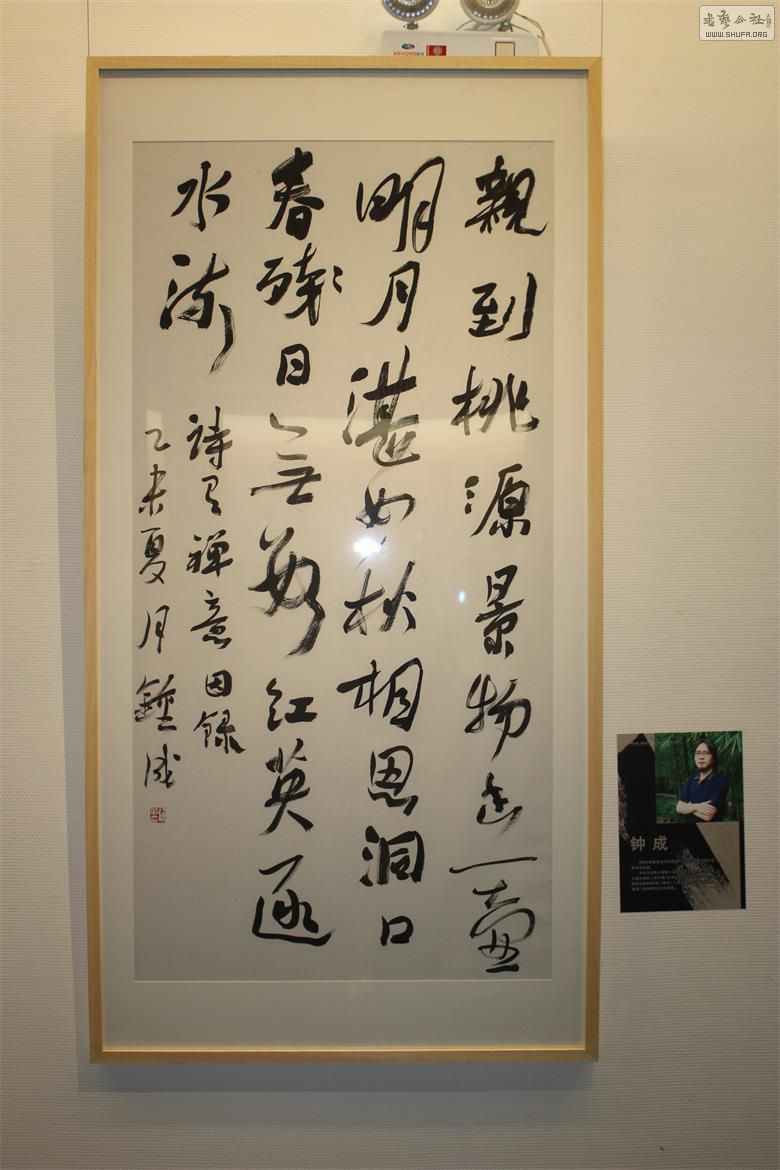 親到桃源景物幽一壺
明月湛如秋相思洞口
春殘日無數紅英逐
水流
詩有禪意因錄
乙未夏月鍾成
钟成
書藝公社
WWW.SHUFA.ORG